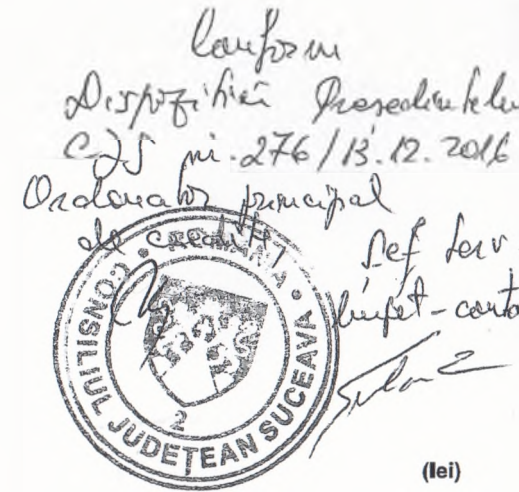 Conform
Dispoziției Președintelui
CJS nr. 276/13.12.2016
Ordonator principal
de credite
Șef serv
buget-conta
ROMÂNIA
CONSILIUL JUDEȚEAN SUCEAVA
2
(lei)